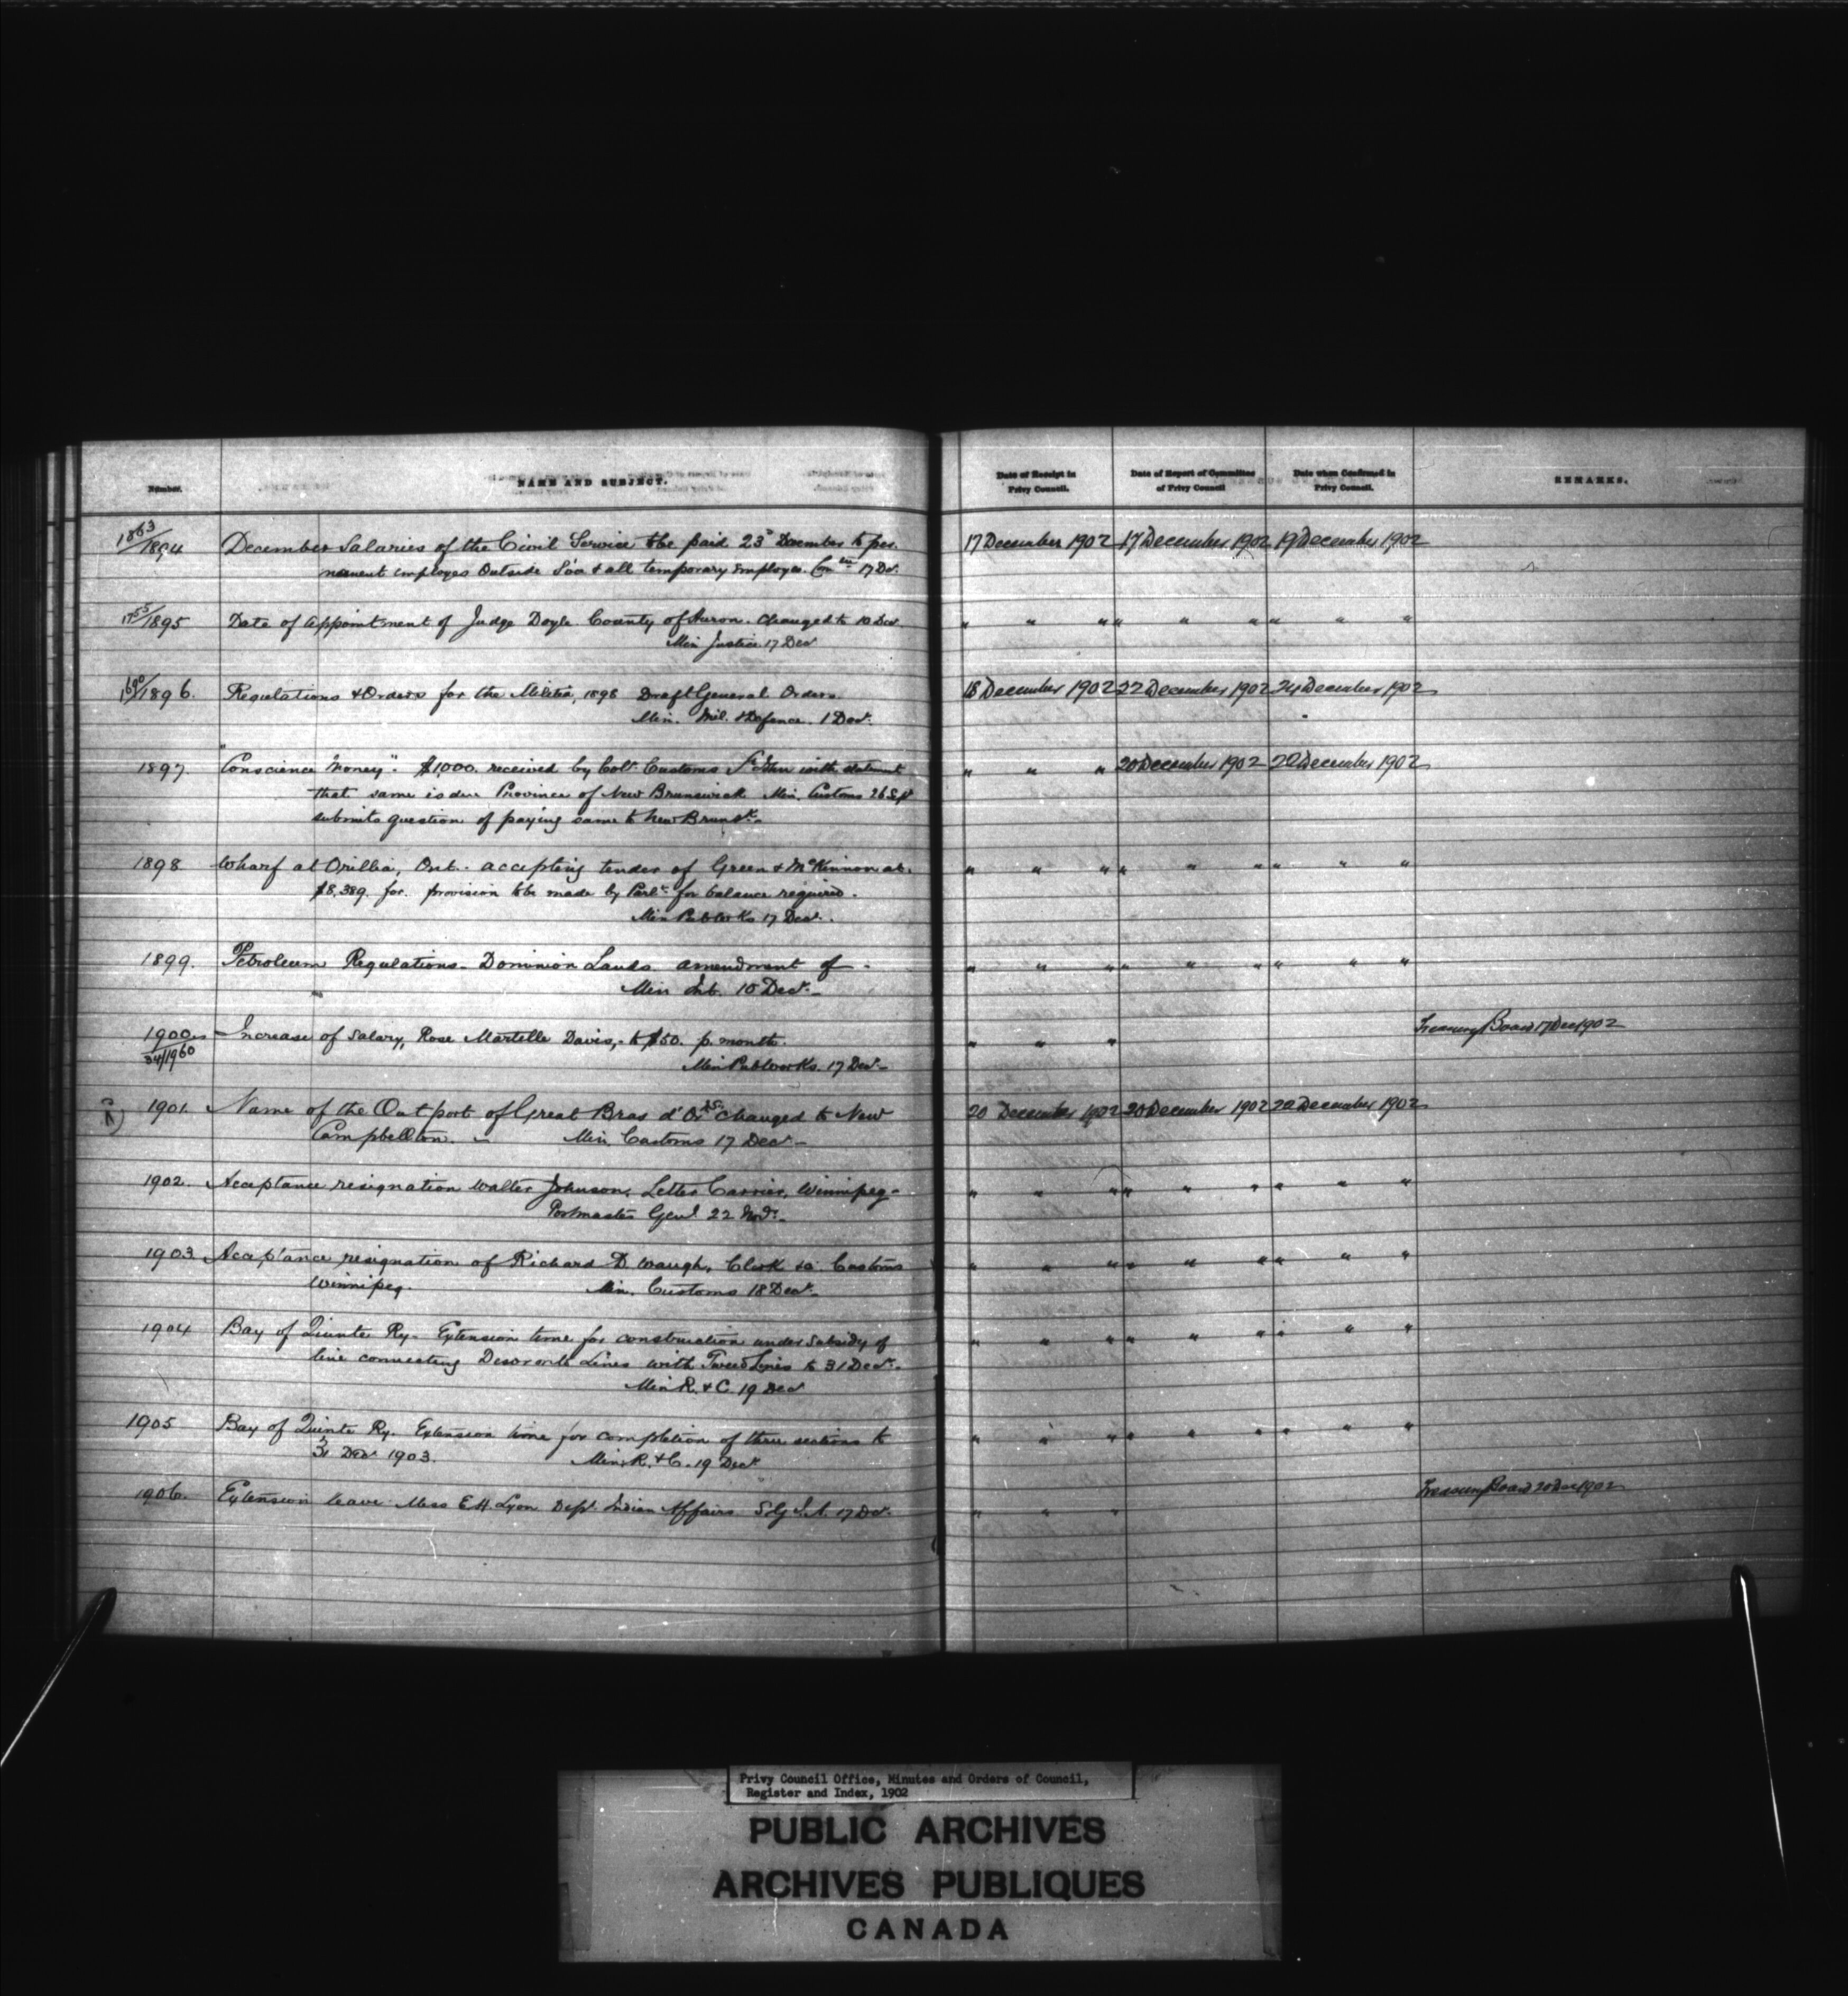 Number. NAME AND SUBJECT. Date of Receipt in Privy Council. Date of Report of Committee of Privy Council Date when Confirmed in Privy Council. REMARKS.
1863/1894 December Salaries of the Civil Service to be paid 23d December to per- 17 December 1902 17 December 1902 19 December 1902
manent employes Outside Svce & all temporary Employes. 17 Dec.
1755/1895 Date of appointment of Judge Doyle County of Huron. Changed to 10 Dec. " " " " " " " " "
Min Justice 17 Decr
1690/1896. Regulations & Orders for the Militia, 1898 Draft General Orders 18 December 1902 22 December 1902 24 December 1902
Min. Mil. & Defence. 1 Decr.
1897. "Conscience Money". $1,000. received by Colr. Customs St John with statement " " " 20 December 1902 20 December 1902
that same is due Province of New Brunswick Min. Customs 26 Sept
submits question of paying same to New Brunsk.
1898 Wharf at Orillia, Ont.- accepting tender of Green & McKinnon at. " " " " " " " " "
$8,389. for. provision to be made by Parlt. for balance required.
Min Pub Works 17 Decr.
1899. Petroleum Regulations - Dominion Lands amendment of - " " " " " " " " "
Min Int. 10 Decr.
1900 Increase of Salary, Rose Martelle Davis,- to $50. p. month. " " " Treasury Board 17 Dec 1902
34/1960
Min Pub Works. 17 Decr.
1901. Name of the Out port of Great Bras d'Or changed to New 20 December 1902 20 December 1902 20 December 1902
Campbellton. - Min. Customs 17 Decr.
1902. Acceptance resignation Walter Johnson, Letter Carrier, Winnipeg - " " " " " " " " "
Postmaster Genl 22 Novr.
1903 Acceptance resignation of Richard D. Waugh, Clerk &c Customs " " " " " " " " "
Winnipeg. Min. Customs 18 Decr.
1904 Bay of Quinte Ry - Extension time for construction under Subsidy of " " " " " " " " "
line connecting Deseronto Lines with Tweed Lines to 31 Decr.
Min R. & C. 19 Decr
1905 Bay of Quinte Ry. Extension time for completion of three sections to " " " " " " " " "
31 Decr 1903. Min. R. & C. 19 Decr
1906. Extension leave Miss E H. Lyon Dept. Indian Affairs S G I. A. 17 Decr. " " " Treasury Board 20 Dec 1902
Privy Council Office, Minutes and Orders of Council,
Register and Index, 1902
PUBLIC ARCHIVES
ARCHIVES PUBLIQUES
CANADA